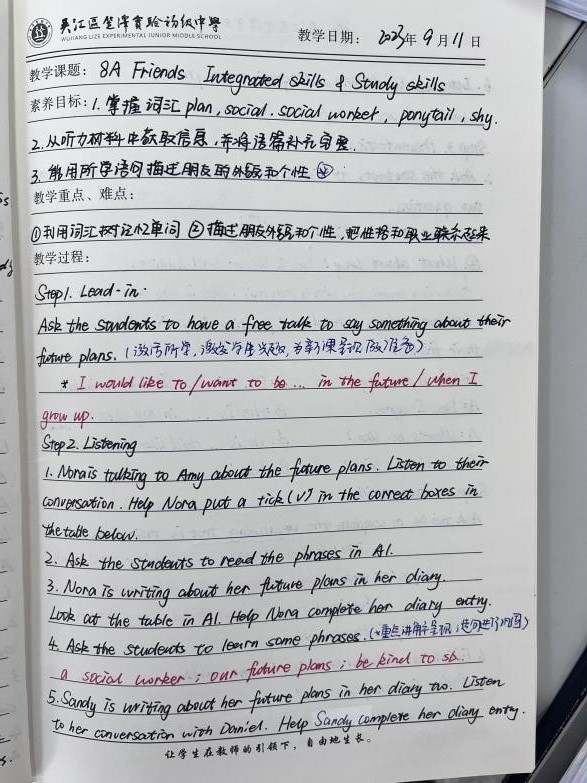 吴江区笠泽实验初级中学
WUJIANG LIZE EXPERIMENTAL JUNIOR MIDDLE SCHOOL
教学日期: 2023年9月11日
教学课题: 8A Friends Integrated skills & Study skills
素养目标: 1. 掌握词汇 plan, social. social worker, ponytail, shy.
2. 从听力材料中获取信息, 并将语篇补充完整.
3. 能用所学语句描述朋友的外貌和个性
教学重点、难点:
①利用词汇树记忆单词 ②描述朋友外貌和个性, 把性格和职业联系起来
教学过程:
Step1. Lead-in.
Ask the students to have a free talk to say something about their
future plans. (激活所学, 激发学生兴趣, 为新课呈现做准备)
* I would like to/want to be ... in the future/when I
grow up.
Step2. Listening
1. Nora is talking to Amy about the future plans. Listen to their
conversation. Help Nora put a tick (√) in the correct boxes in
the table below.
2. Ask the students to read the phrases in A1.
3. Nora is writing about her future plans in her diary.
Look at the table in A1. Help Nora complete her diary entry.
4. Ask the students to learn some phrases. (*重点讲解
a social worker; our future plans; be kind to sb.
5. Sandy is writing about her future plans in her diary two. Listen
to her conversation with Daniel. Help Sandy complete her diary entry.
让学生在教师的引领下, 自由地生长。